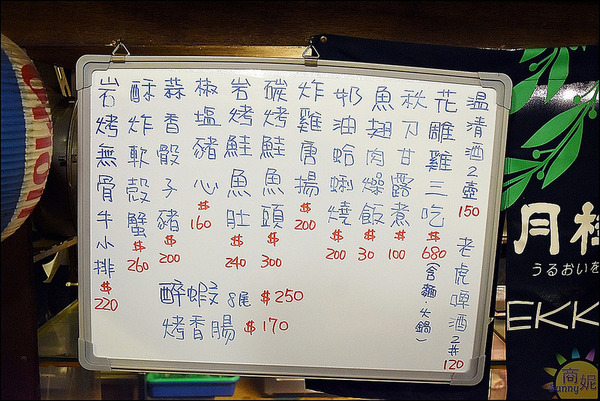 温清酒2壺150
老虎啤酒2#120
花雕雞三吃$680(含麵·火鍋)
秋刀甘露煮$100
魚翅肉燥飯$30
奶油蛤蜊燒$200
炸雞唐揚$200
碳烤鮭魚頭$300
岩烤鮭魚肚$240
椒塩豬心$160
蒜香骰子豬$200
酥炸軟殼蟹$260
岩烤無骨牛小排$220
醉蝦8尾$250
烤香腸$170
月桂
うるおいを
EKK
商妮
Sunny